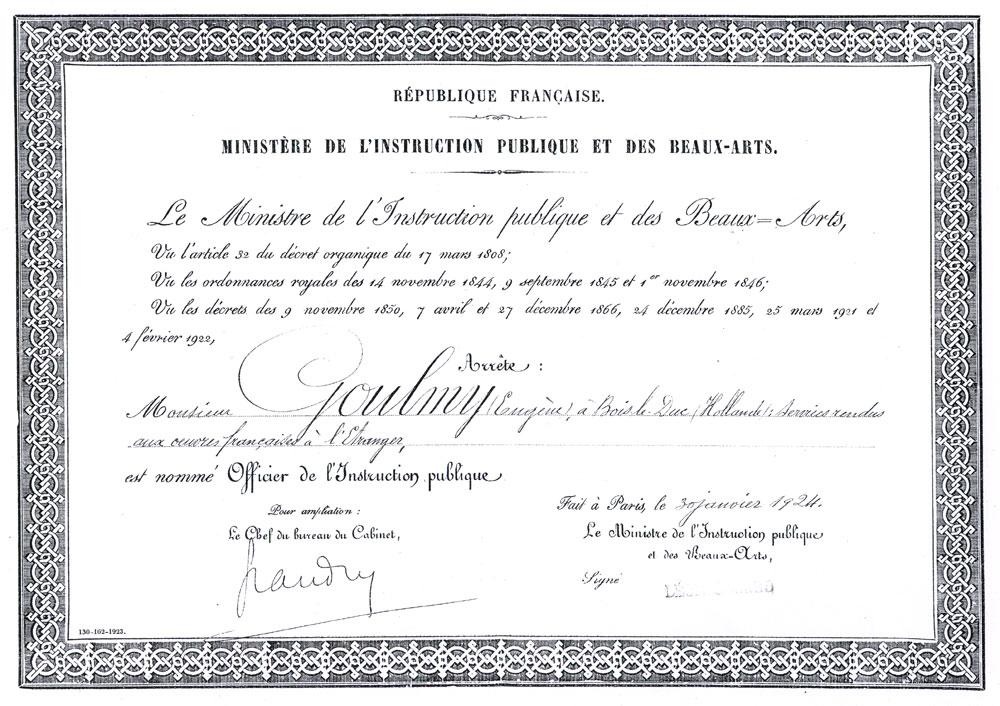 RÉPUBLIQUE FRANÇAISE.
MINISTÈRE DE L'INSTRUCTION PUBLIQUE ET DES BEAUX-ARTS.
Le Ministre de l'Instruction publique et des Beaux=Arts,
Vu l'article 32 du décret organique du 17 mars 1808;
Vu les ordonnances royales des 14 novembre 1844, 9 septembre 1845 et 1er novembre 1846;
Vu les décrets des 9 novembre 1850, 7 avril et 27 décembre 1866, 24 décembre 1885, 25 mars 1921 et
4 février 1922,
Arrête :
Monsieur Goulmy (Eugène), à Bois-le-Duc (Hollande): services rendus
aux œuvres françaises à l'Etranger,
est nommé Officier de l'Instruction publique
Pour ampliation :
Le Chef du bureau du Cabinet,
Fait à Paris, le 30 janvier 1924.
Le Ministre de l'Instruction publique
et des Beaux-Arts,
Signé
130-162-1923.